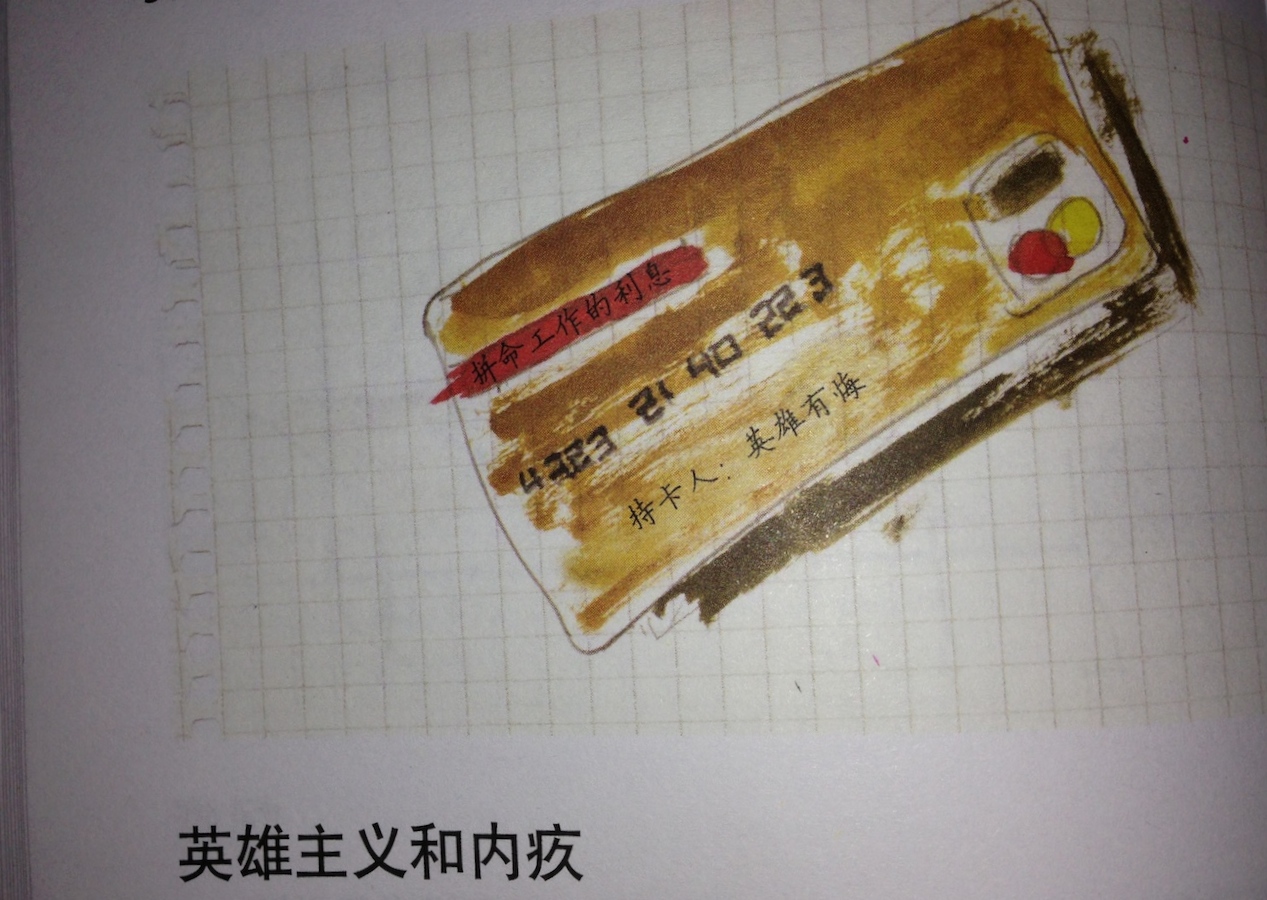 拼命工作的利息
4323 21 40 223
持卡人：英雄有悔
英雄主义和内疚